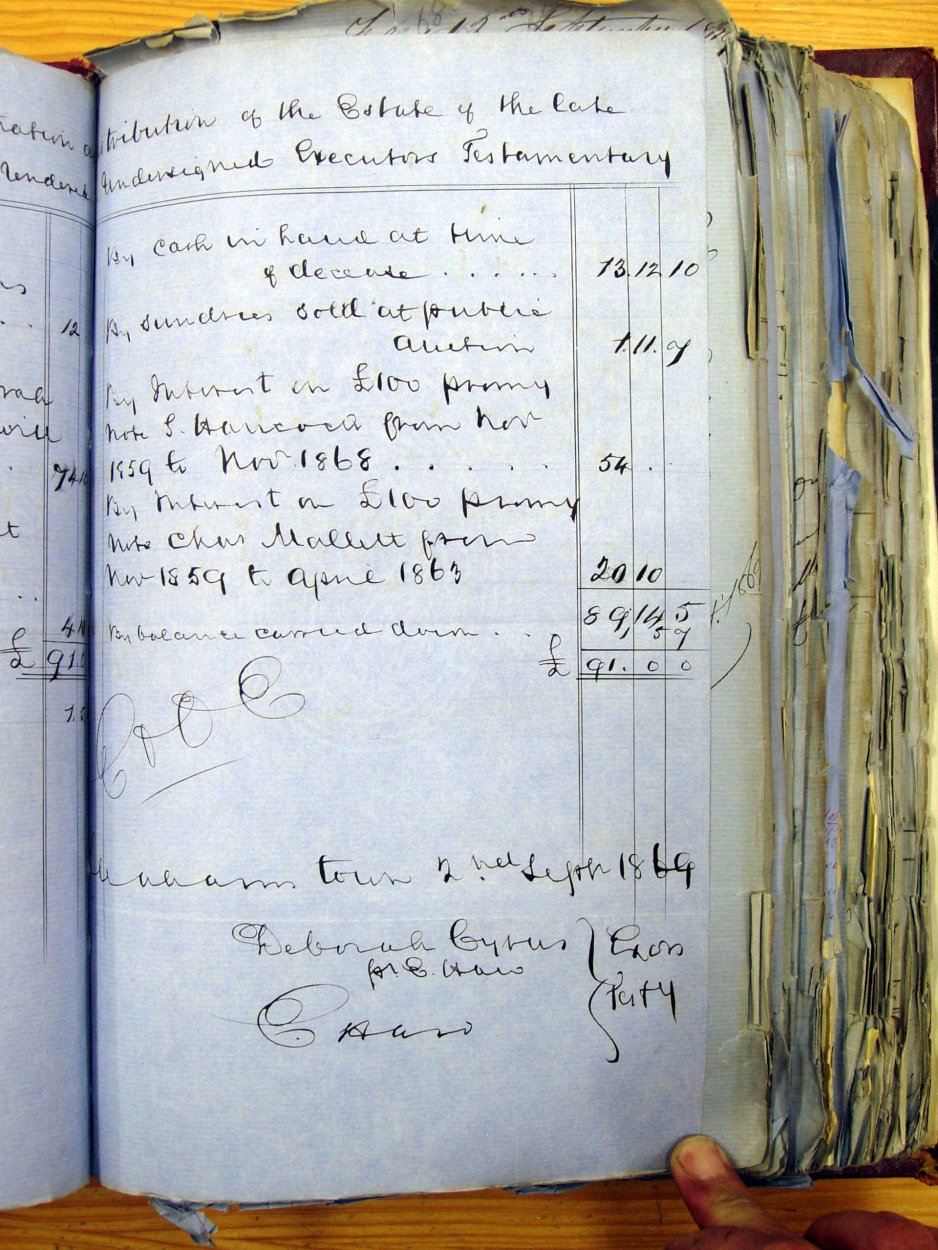 tribution of the Estate of the late
Undersigned Executors Testamentary
By cash in hand at time
of decease . . . . . . 13. 12 10
By sundries sold at public
Auction 1. 11. 7
By Interest on £100 promy
note S. Hancock from Nov
1859 to Nov. 1868 . . . . . . 54 . .
By Interest on £100 promy
note Chas Mallett from
Nov 1859 to April 1863 20 10
89, 14, 5
By balance carried down . . 1 5 7
£ 91. 0 0
E & O E
Grahams town 2nd Septr 1869
Deborah Cyrus } Exors
pr C. Haw
Testy
C Haw
12
74
4
£ 91.
1.5